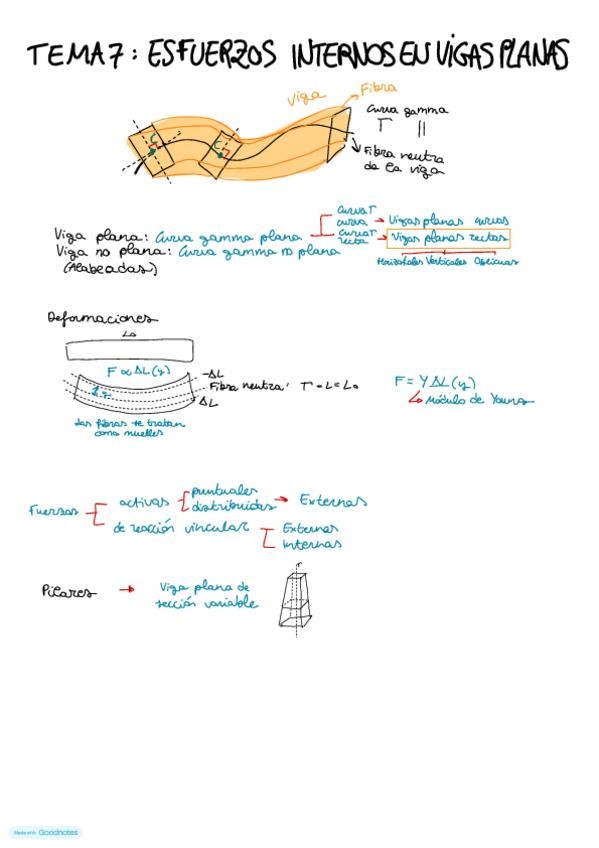 TEMA 7: ESFUERZOS INTERNOS EN VIGAS PLANAS
Viga
Fibra
Curva gamma
Γ
Fibra neutra
de la viga
C
C
Viga plana: Curva gamma plana
Curva Γ
curva
Vigas planas curvas
Curva Γ
recta
Vigas planas rectas
Viga no plana: Curva gamma no plana
(Alabeadas)
Horizontales Verticales Oblicuas
Deformaciones
L₀
F ∝ ΔL(y)
-ΔL
Fibra neutra: Γ - L = L₀
ΔL
Las fibras se tratan
como muelles
F = Y ΔL(y)
Módulo de Young
Fuerzas
activas
puntuales
distribuidas
Externas
de reacción vincular
Externas
Internas
Pilares
Viga plana de
sección variable
Made with Goodnotes